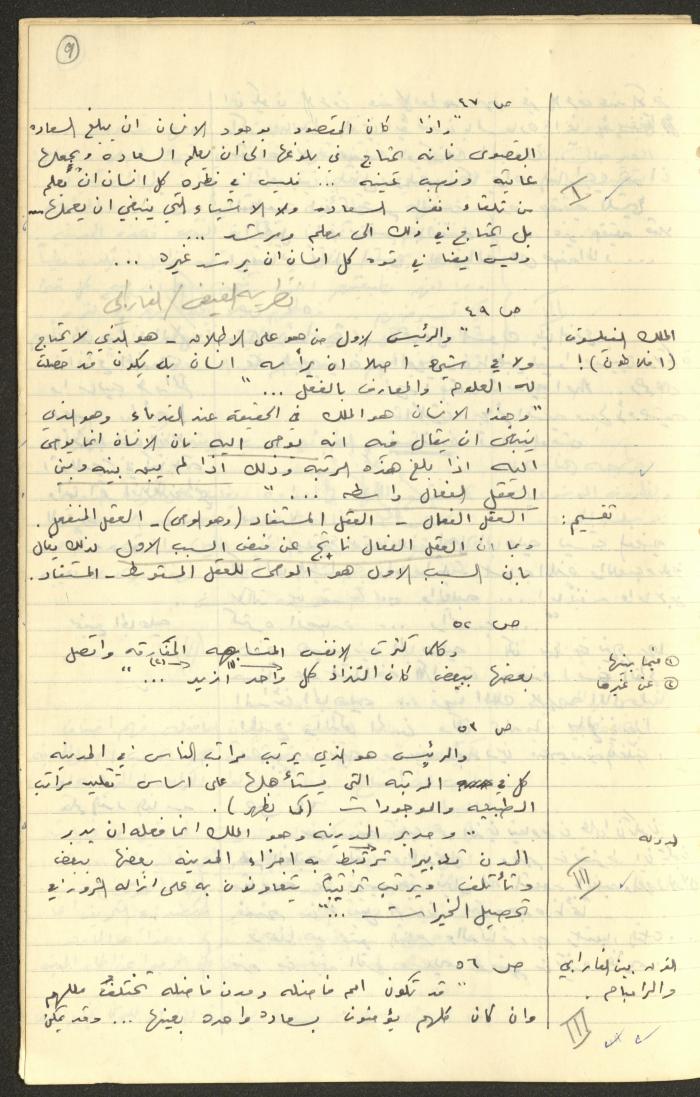 ٩
ص ٤٧
"واذا كان المقصود بوجود الانسان ان يبلغ السعاده
القصوى فانه يحتاج في بلوغها الى ان يعلم السعاده ويجعلها
غايته ونصب عينيه ... فليس في فطره كل انسان ان يعلم
من تلقاء نفسه السعاده ولا الاشياء التي ينبغي ان يعملها ...
بل يحتاج في ذلك الى معلم ومرشد ...
وليس ايضا في قوه كل انسان ان يرشد غيره ...
I
نظرية الفيض / الفارابي
ص ٤٩
الملك الفيلسوف
(افلاطون)!
"والرئيس الاول من هو على الاطلاق - هو الذي لا يحتاج
ولا في شيء اصلا ان يرأسه انسان بل يكون قد حصلت
له العلوم والمعارف بالفعل ..."
"وهذا الانسان هو الملك في الحقيقه عند القدماء وهو الذي
ينبغي ان يقال فيه انه يوحى اليه فان الانسان انما يوحى
اليه اذا بلغ هذه الرتبه وذلك اذا لم يبق بينه وبين
العقل الفعال واسطه ..."
تقسيم:
العقل الفعال - العقل المستفاد (وهو اوحى) - العقل المنفعل.
وبما ان العقل الفعال ناتج عن فيض السبب الاول لذلك يقال
بان السبب الاول هو الموحى للعقل المتوسط - المستفاد.
ص ٥٢
وكلما كثرت الانفس المتشابهه المفارقه واتصل
بعضها ببعض كان التذاذ كل واحد (١) ازيد (٢) ..."
① فيما بينها
② عن غيرها
ص ٥٣
والرئيس هو الذي يرتب مراتب الناس في المدينه
كل في المرتبه التي يستأهلها على اساس تقليد مراتب
الطبيعه والموجودات (كما يظهر).
الدوله
"ومدبر المدينه وهو الملك انما فعله ان يدبر
المدن تدبيرا ترتبط به اجزاء المدينه بعضها ببعض
وتأتلف ويرتب ترتيبا يتعاونون به على ازاله الشرور في
تحصيل الخيرات ..."
III
ص ٥٦
الفرق بين الفارابي
"قد تكون امم فاضله ومدن فاضله تختلف مللهم
وان كان كلهم يؤمنون بسعاده واحده بعينها ... وقد يمكن
II